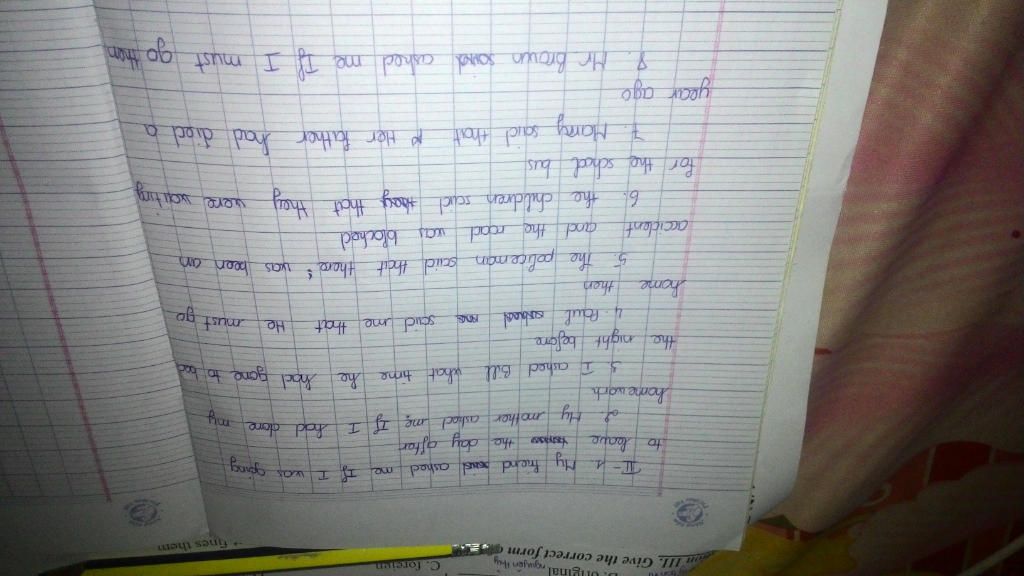 ion III. Give the correct form
D. original
nguyễn thy
C. foreign
fines them
II - 1. My friend asked me If I was going
to leave the day after
2. My mother asked me If I had done my
homework
3. I asked Bill what time he had gone to bed
the night before
4. Paul said me that He must go
home then
5. The policeman said that there was been an
accident and the road was blocked
6. the children said that they were waiting
for the school bus
7. Marry said that Her father had died a
year ago
8. Mr Brown asked me If I must go then